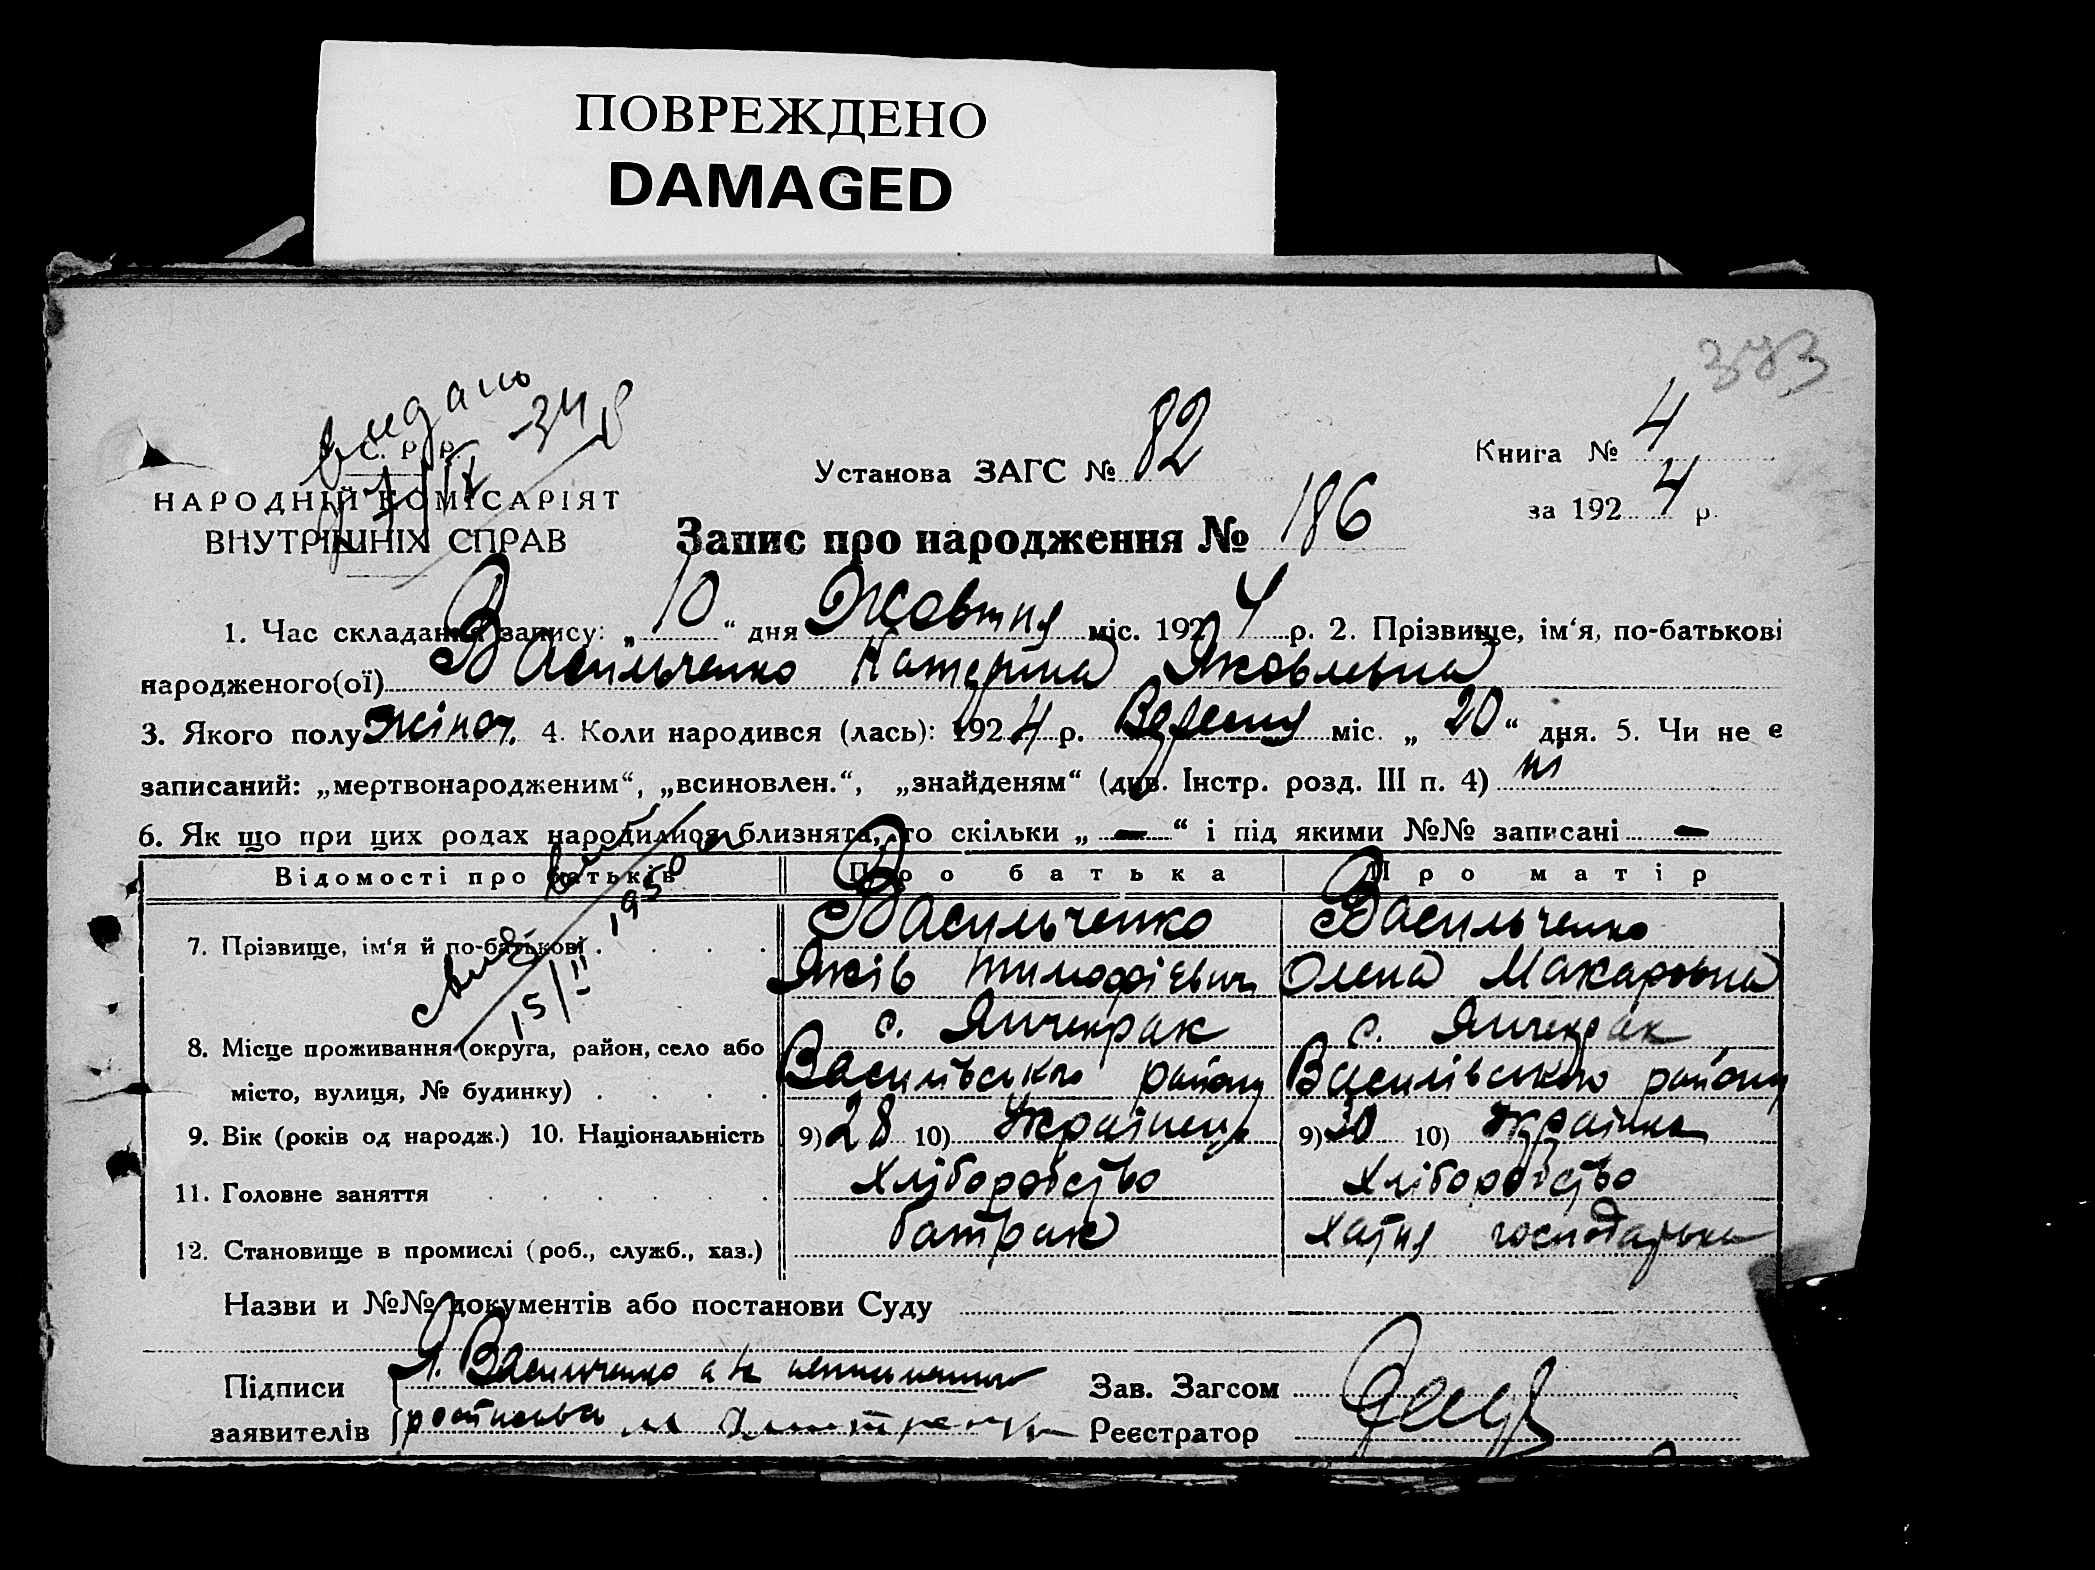 ПОВРЕЖДЕНО
DAMAGED
383
видано
348
С. Р. Р.
НАРОДНІЙ КОМІСАРІЯТ
ВНУТРІШНІХ СПРАВ
Установа ЗАГС № 82
Книга № 4
за 1924 р.
Запис про народження № 186
1. Час складання запису: „10“ дня Жовтня міс. 1924 р. 2. Прізвище, ім‘я, по-батькові
народженого(ої) Васильченко Катеріна Яковлевна
3. Якого полу жіноч. 4. Коли народився (лась): 1924 р. Вересня міс. „20“ дня. 5. Чи не є
записаний: „мертвонародженим“, „всиновлен.“, „знайденям“ (див. Інстр. розд. III п. 4) ні
6. Як що при цих родах народилися близнята, то скільки „—“ і під якими №№ записані —
Відомості про батьків Про батька Про матір
7. Прізвище, ім‘я й по-батькові Васильченко Васильченко
Яків Тимофієвич Олена Макаровна
15/II 1950
8. Місце проживання (округа, район, село або с. Янчекрак с. Янчекрак
місто, вулиця, № будинку) Василівського району Василівського району
9. Вік (років од народж.) 10. Національність 9) 28 10) Українець 9) 30 10) Українка
11. Головне заняття Хліборобство Хліборобство
12. Становище в промислі (роб., служб., хаз.) батрак хатня господарька
Назви и №№ документів або постанови Суду
Підписи Я. Васильченко а за неписьменного
заявителів росписався
Зав. Загсом
Реєстратор